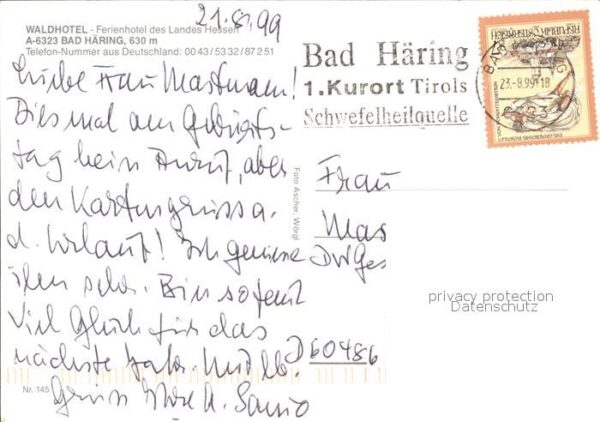 21.8.99
WALDHOTEL - Ferienhotel des Landes Hessen
A-6323 BAD HÄRING, 630 m
Telefon-Nummer aus Deutschland: 00 43 / 53 32 / 8 72 51
Liebe Frau
Diesmal am Geburts-
tag kein Anruf, aber
den Kartengruss a.
d. Urlaub! Ich geniesse
ihn sehr. Bin so
Viel Glück für das
nächste Jahr. Mit lb.
Gruss Ihre
Nr. 145
Foto Ascher, Wörgl
Bad Häring
1. Kurort Tirols
Schwefelheilquelle
23.-8.99-18
6323
Frau
D 60486
privacy protection
Datenschutz